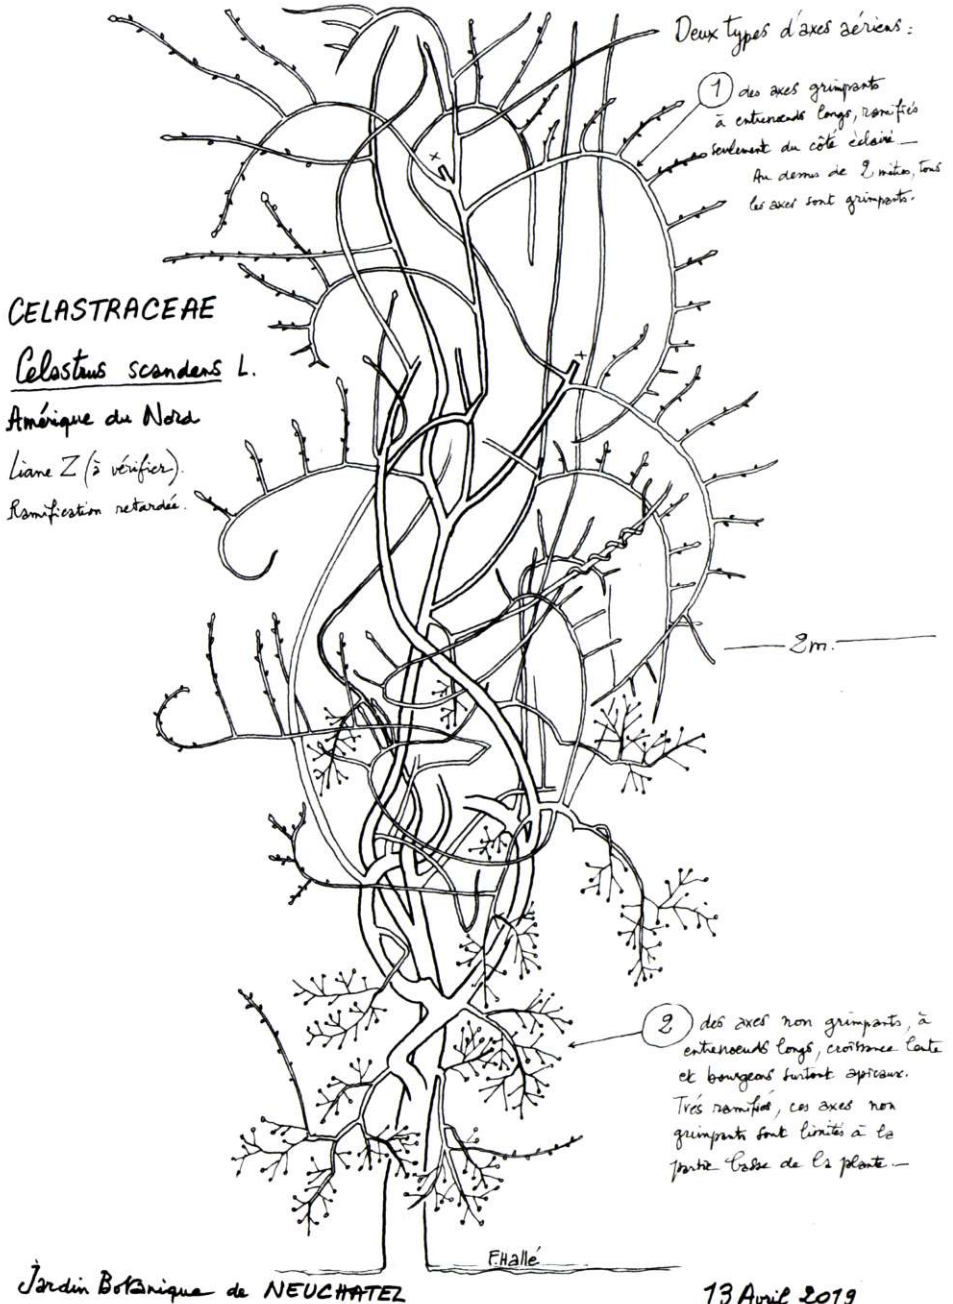 Deux types d'axes aériens :
1 des axes grimpants
à entrenoeuds longs, ramifiés
seulement du côté éclairé —
Au dessus de 2 mètres, tous
les axes sont grimpants.
CELASTRACEAE
Celastrus scandens L.
Amérique du Nord
Liane Z (à vérifier).
Ramification retardée.
x
x
2m.
2 des axes non grimpants, à
entrenoeuds longs, croissance lente
et bourgeons surtout apicaux.
Très ramifiés, ces axes non
grimpants sont limités à la
partie basse de la plante —
F. Hallé
Jardin Botanique de NEUCHATEL
13 Avril 2019